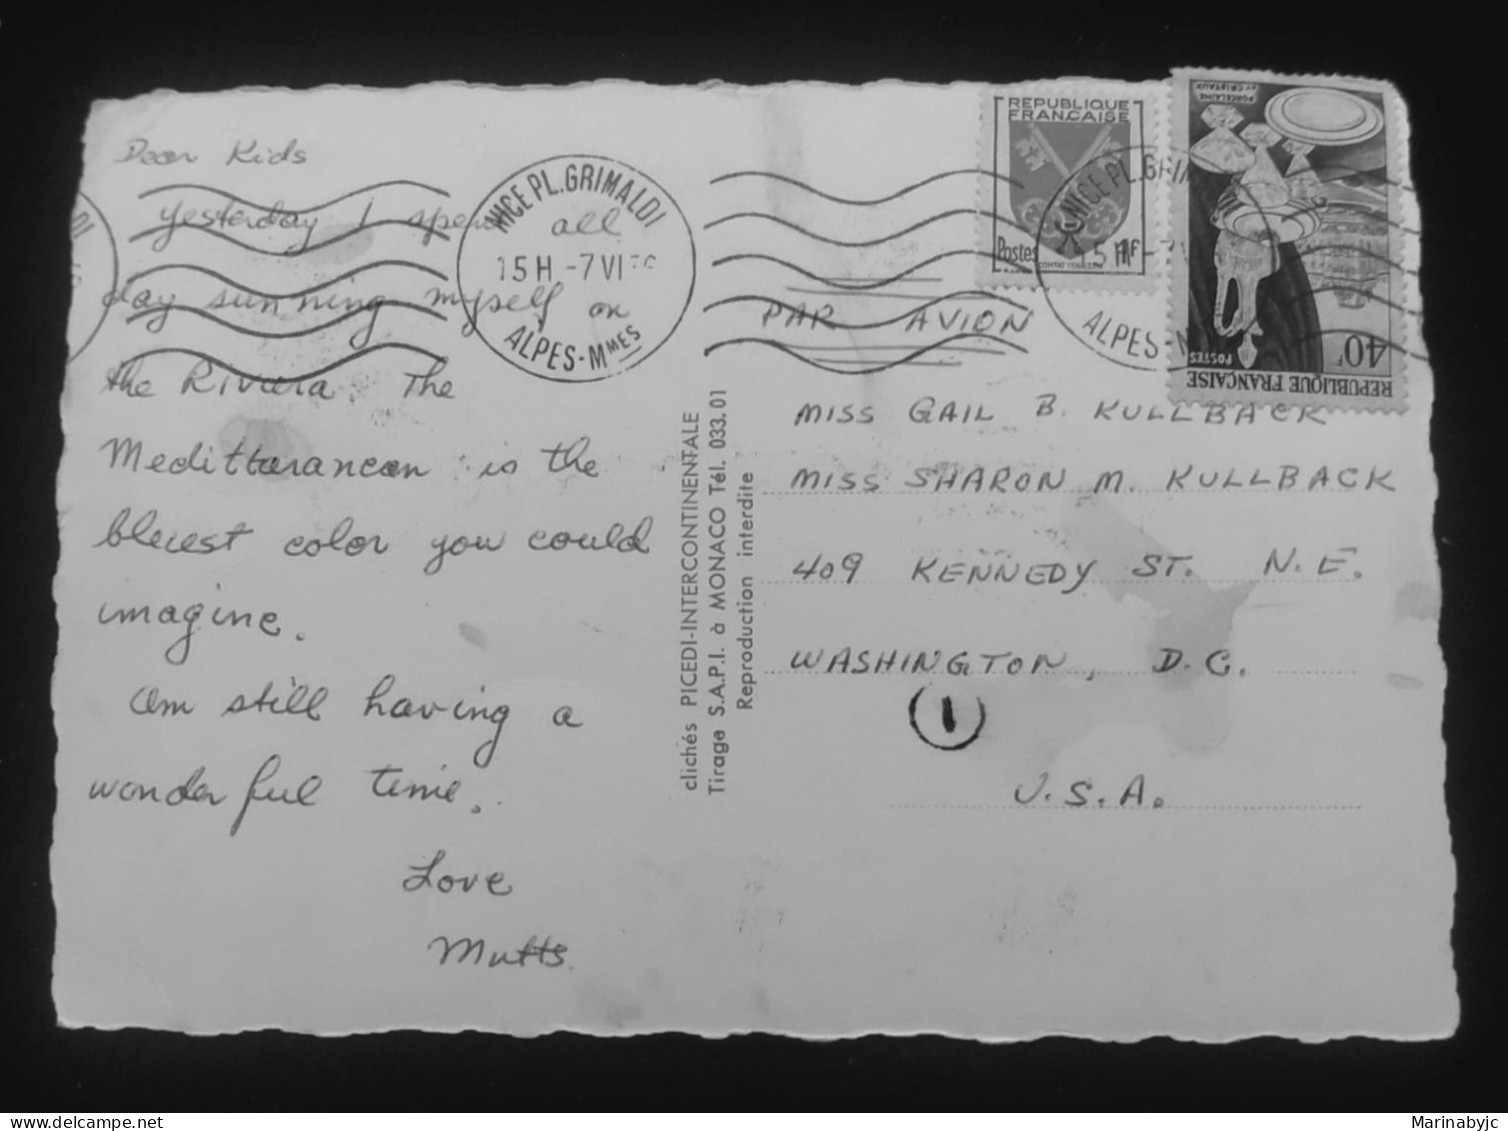 Dear Kids
yesterday I spent all
day sunning myself on
the Riviera. The
Meditteranean is the
bluest color you could
imagine.
Am still having a
wonderful time.
Love
Mutts.
NICE PL.GRIMALDI
15H -7 VI
ALPES-MMES
clichés PICEDI-INTERCONTINENTALE
Tirage S.A.P.I. à MONACO Tél. 033.01
Reproduction interdite
REPUBLIQUE
FRANÇAISE
Postes
1F
COMTAT VENAISSIN
NICE PL.GRIM
15H -7 VI
ALPES-M
PORCELAINE
ET CRISTAUX
POSTES
40F
REPUBLIQUE FRANÇAISE
PAR AVION
MISS GAIL B. KULLBACK
MISS SHARON M. KULLBACK
409 KENNEDY ST. N.E.
WASHINGTON, D.C.
1
U.S.A.
Marinabyjc